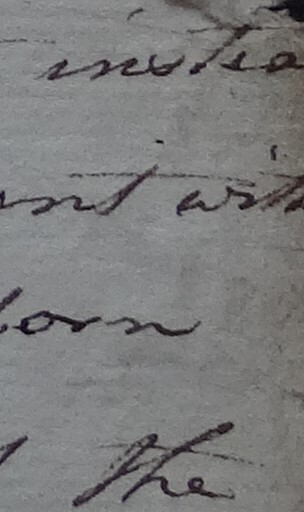 instea
ent with
born
the